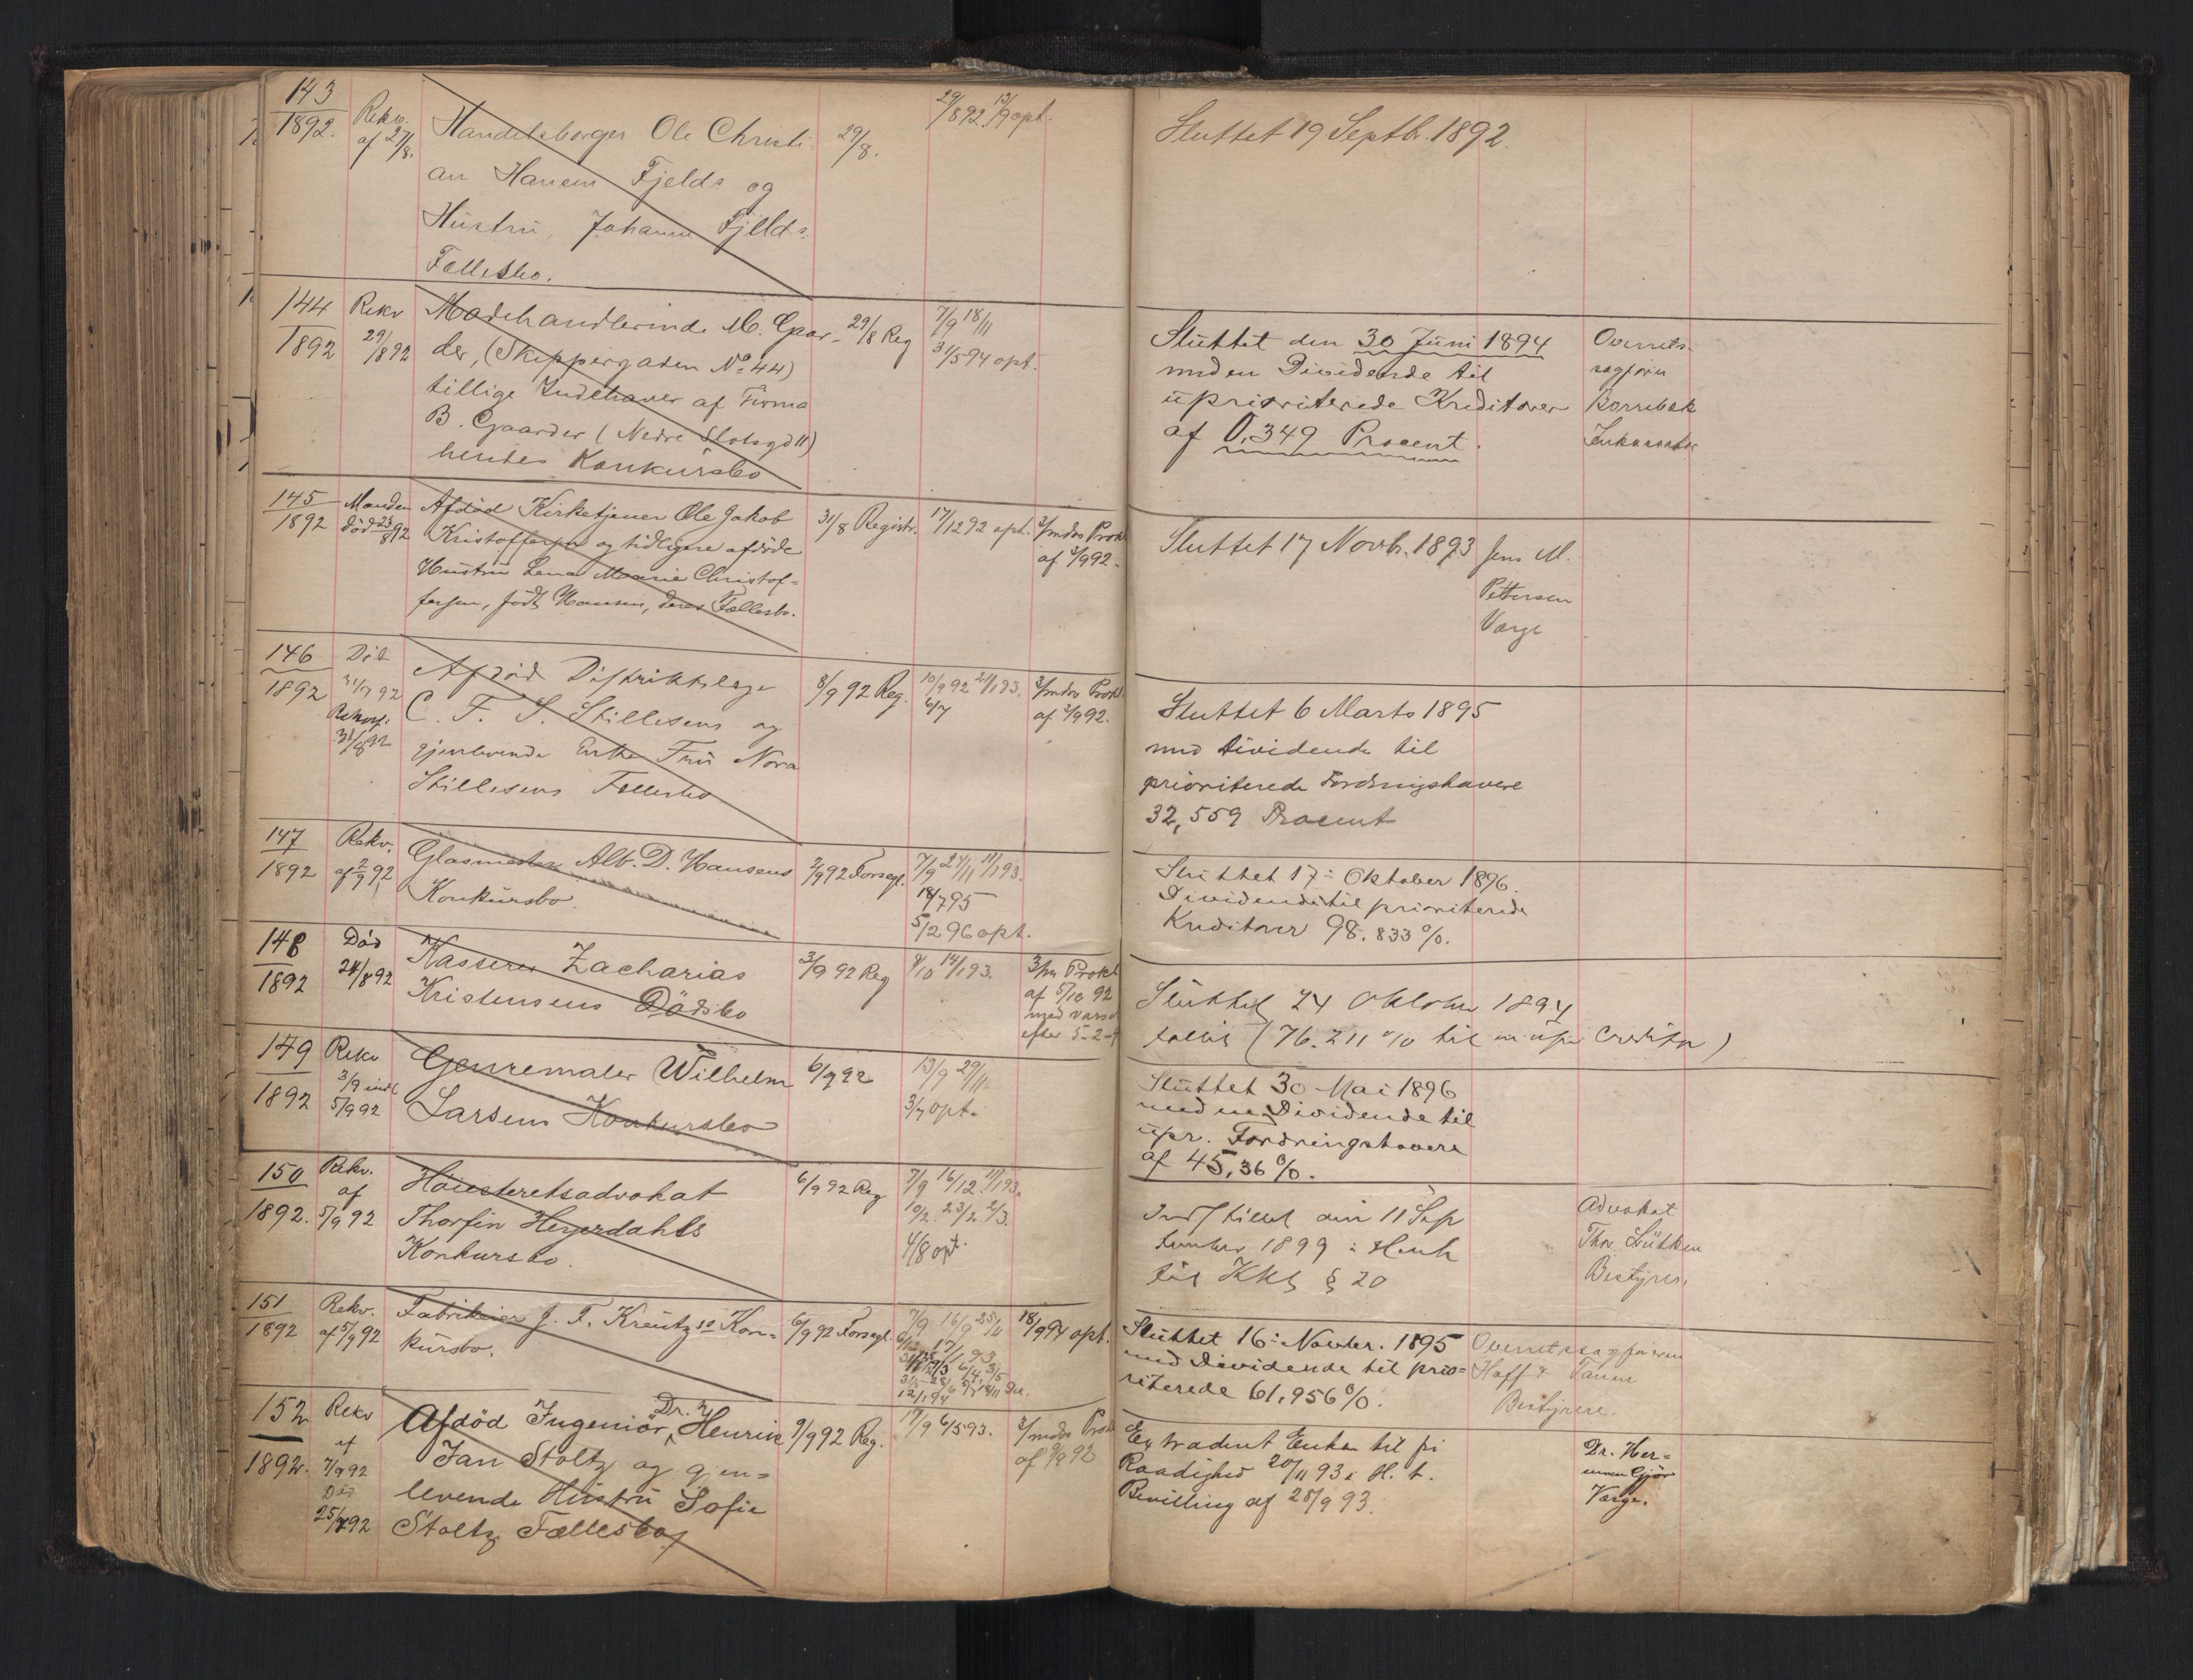 143
1892.
Rekv.
af 27/8.
Handelsborger Ole Christi-
an Hansen Fjelds og
Hustru, Johanne Fjelds
Fællesbo.
29/8.
29/8 92. 13/9 opt.
Sluttet 19 Septbr. 1892.
144
1892
Rekv
29/8 92
Modehandlerinde M. Gaar-
der, (Skippergaden No 44)
tillige Indehaver af Firma
B. Gaarder (Nedre Slotsgd 11)
hendes Konkursbo
29/8 Reg
7/9 18/11
31/5 94 opt.
Sluttet den 30 Juni 1894
med en Dividende til
uprioriterede Kreditorer
af 0,349 Procent.
Overrets-
sagfører
Borrebæk
Inkassator
145
1892
Manden
død 23/8 92
Afdød Kirketjener Ole Jakob
Kristoffersen og tidligere afdøde
Hustru Lena Marie Christof-
fersen, født Hansen, deres Fællesbo.
31/8 Registr.
17/12 92 opt.
3/mdrs Prokl
af 3/9 92.
Sluttet 17 Novbr. 1893
Jens M.
Pettersen
Værge
146
1892
Død
31/7 92
Rekv.
31/8 92
Afdød Distriktslæge
C. F. S. Stillesens og
gjenlevende Enke Fru Nora
Stillesens Fællesbo
8/9 92 Reg.
10/9 92 21/1 93.
6/7
3/mdrs Prokl
af 3/9 92.
Sluttet 6 Marts 1895
med Dividende til
prioriterede Fordringshavere
32,559 Procent
147
1892
Rekv.
af 2/9 92
Glasmester Alb. D. Hansens
Konkursbo.
2/9 92 Forsegl.
7/9 24/11 11/1 93.
18/7 95
5/2 96 opt.
Sluttet 17: Oktober 1896.
Dividende til prioriterede
Kreditorer 98,833 %.
148
1892
Død
24/8 92
Kasserer Zacharias
Kristensens Dødsbo
3/9 92 Reg
9/10 14/1 93.
3/m Prokl
af 5/10 92
med varsel
efter 5-2-
Sluttet 24 Oktober 1894
(76.211 % til
149
1892
Rekv
3/9 indk
5/9 92
Genremaler Wilhelm
Larsens Konkursbo
6/9 92
13/9 29/11.
3/7 opt.
Sluttet 30 Mai 1896
med en Dividende til
upr. Fordringshavere
af 45,36 %.
150
1892.
Rekv.
af
5/9 92
Höiesteretsadvokat
Thorfin Heyerdahls
Konkursbo.
6/9 92 Reg
7/9 16/12 11/1 93.
10/2. 23/2. 2/3.
4/8 opt.
Indstillet den 11 Sep
tember 1899 i Henh
til Kkl § 20
Advokat
Thor Lütken
Bestyrer.
151
1892
Rekv.
af 5/9 92
Fabrikeier J. F. Kreutz's Kon-
kursbo.
6/9 92 Forsegl.
7/9 16/9 25/11
12/1 94
18/9 94 opt.
Sluttet 16: Novbr. 1895
med Dividende til prio-
riterede 61,956 %.
Overretssagførerne
Hoff &
Bestyrere.
152
1892.
Rekv
af
7/9 92
Død
25/7 92
Afdöd Ingeniör, Dr. Henrik
Jan Stoltz og gjen-
levende Hustru Sofie
Stoltz Fællesbo
9/9 92 Reg.
17/9 6/5 93.
3/mdrs Prokl
af 9/9 92
Extradert Enken til fri
Raadighed 20/11 93 i H. t.
Bevilling af 28/9 93.
Dr. Her-
man Gjör
Værge.